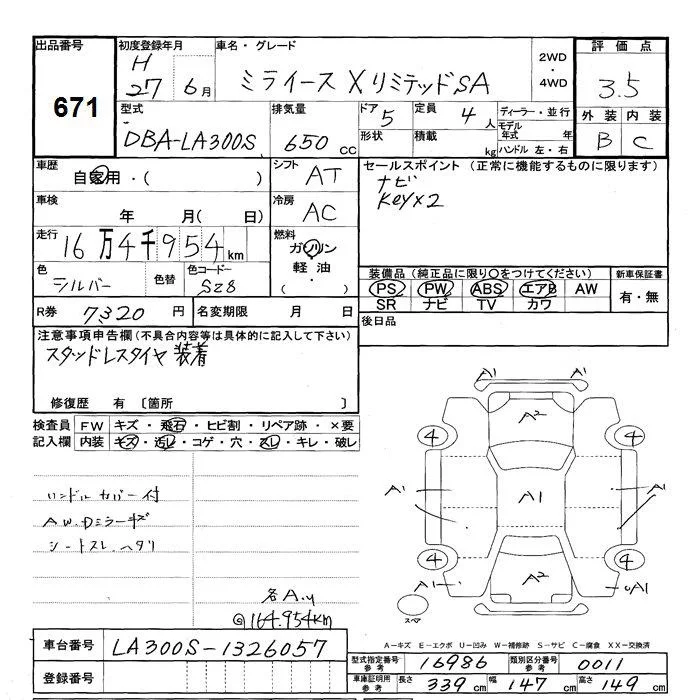 出品番号
671
初度登録年月
H
27年 6月
車名・グレード
ミライース X リミテッドSA
2WD
・
4WD
評価点
3.5
外装 内装
B C
型式
DBA-LA300S
排気量
650 CC
ドア 5
形状
定員 4人
積載 kg
ディーラー・並行
モデル年式 年
ハンドル 左・右
車歴
自家用・( )
シフト
AT
車検
年 月( 日)
冷房
AC
走行
16万4千954km
燃料
ガソリン
・
軽油
・
( )
色
シルバー
色替
色コード
S28
R券 7320円
名変期限 月 日
セールスポイント (正常に機能するものに限ります)
ナビ
Key×2
装備品 (純正品に限り○をつけてください)
PS PW ABS エアB AW
SR ナビ TV カワ
新車保証書
有・無
後日品
注意事項申告欄(不具合内容等は具体的に記入して下さい)
スタッドレスタイヤ 装着
修復歴 有 〔箇所 〕
検査員記入欄
FW キズ・飛石・ヒビ割・リペア跡・×要
内装 キズ・汚レ・コゲ・穴・スレ・キレ・破レ
ハンドルカバー付
AW.Dミラーキズ
シートスレ.ヘタリ
各A.y
@164.954km
A1 A1
A2
4 4
A1 A1 A1
4 4
A1 A2 A1
スペア
A-キズ E-エクボ U-凹み W-補修跡 S-サビ C-腐食 XX-交換済
車台番号 LA300S-1326057
登録番号
型式指定番号 参考 16986
類別区分番号 参考 0011
車庫証明用 参考 長さ 339cm 幅 147cm 高さ 149cm